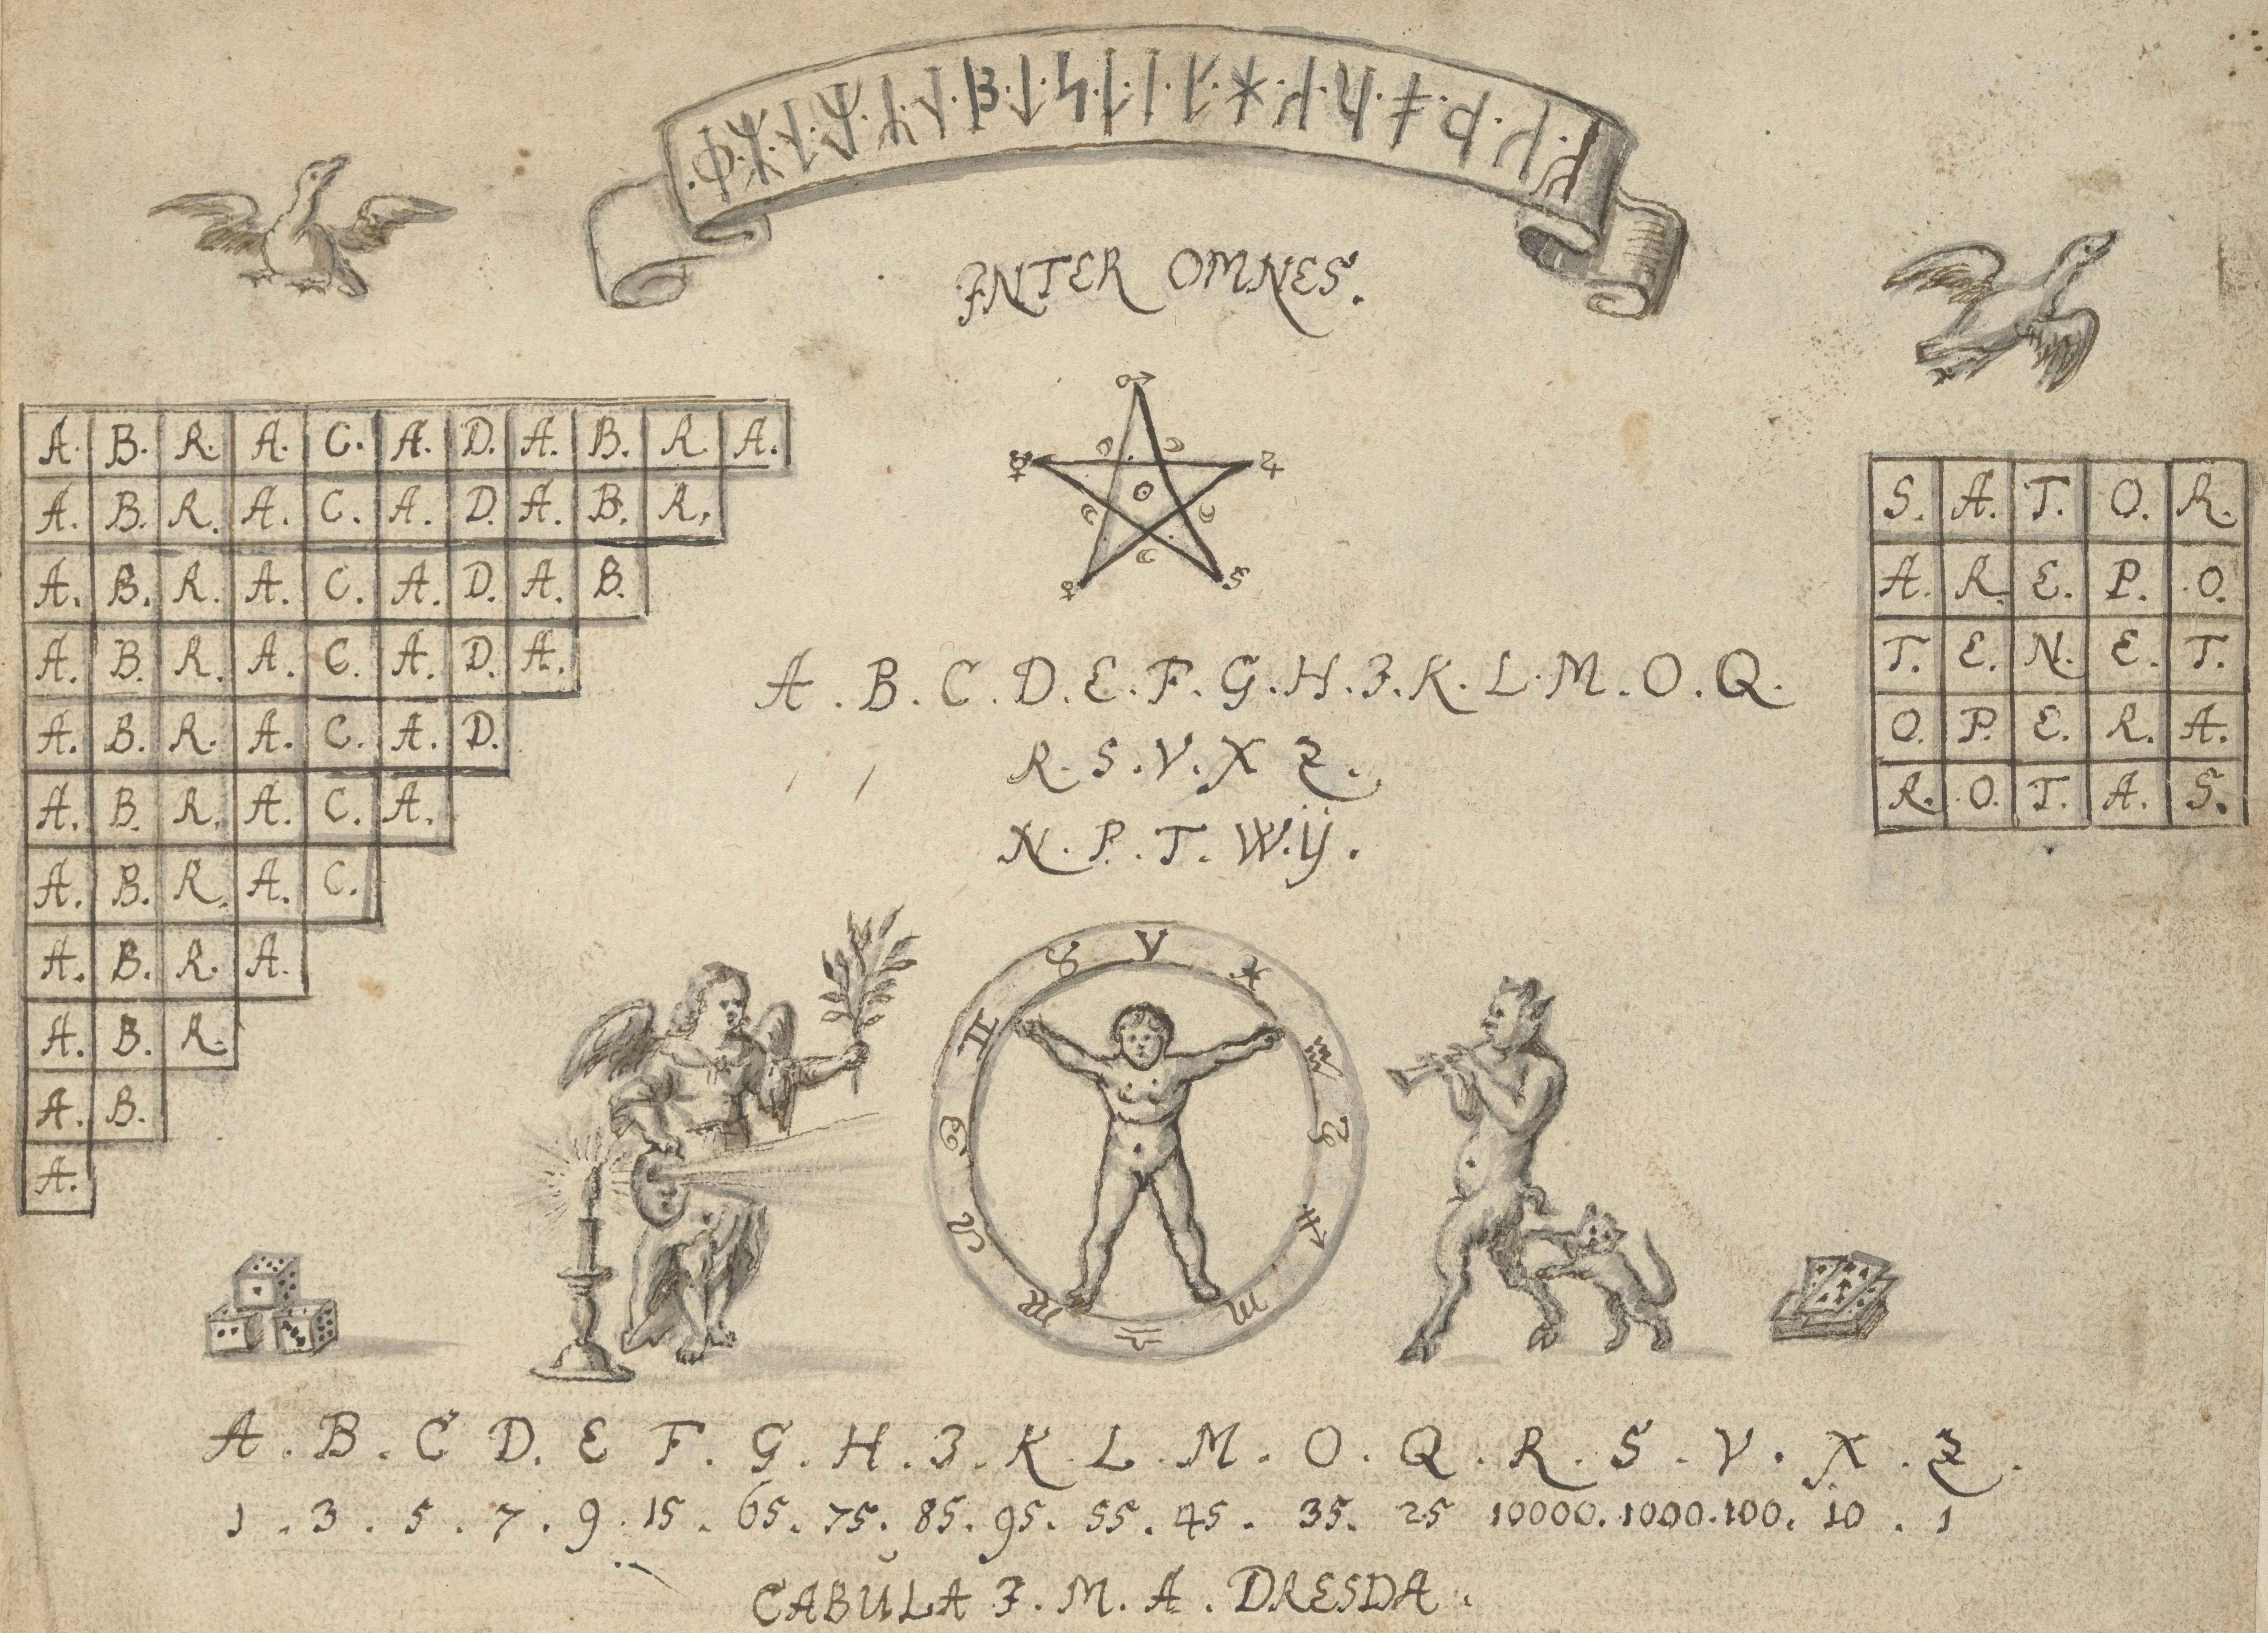 INTER OMNES.
A. B. R. A. C. A. D. A. B. R. A.
A. B. R. A. C. A. D. A. B. R.
A. B. R. A. C. A. D. A. B.
A. B. R. A. C. A. D. A.
A. B. R. A. C. A. D.
A. B. R. A. C. A.
A. B. R. A. C.
A. B. R. A.
A. B. R.
A. B.
A.
A . B . C . D . E . F . G . H . I . K . L . M . O . Q .
R . S . V . X Z .
N . P . T . W . Ÿ .
S. A. T. O. R.
A. R. E. P. O.
T. E. N. E. T.
O. P. E. R. A.
R. O. T. A. S.
A . B . C D . E F . G . H . I . K . L . M . O . Q . R . S . V . X . Z .
1 . 3 . 5 . 7 . 9 . 15 . 65 . 75 . 85 . 95 . 55 . 45 . 35 . 25 10000 . 1000 . 100 . 10 . 1
CABŬLA I . M . A . DRESDA .